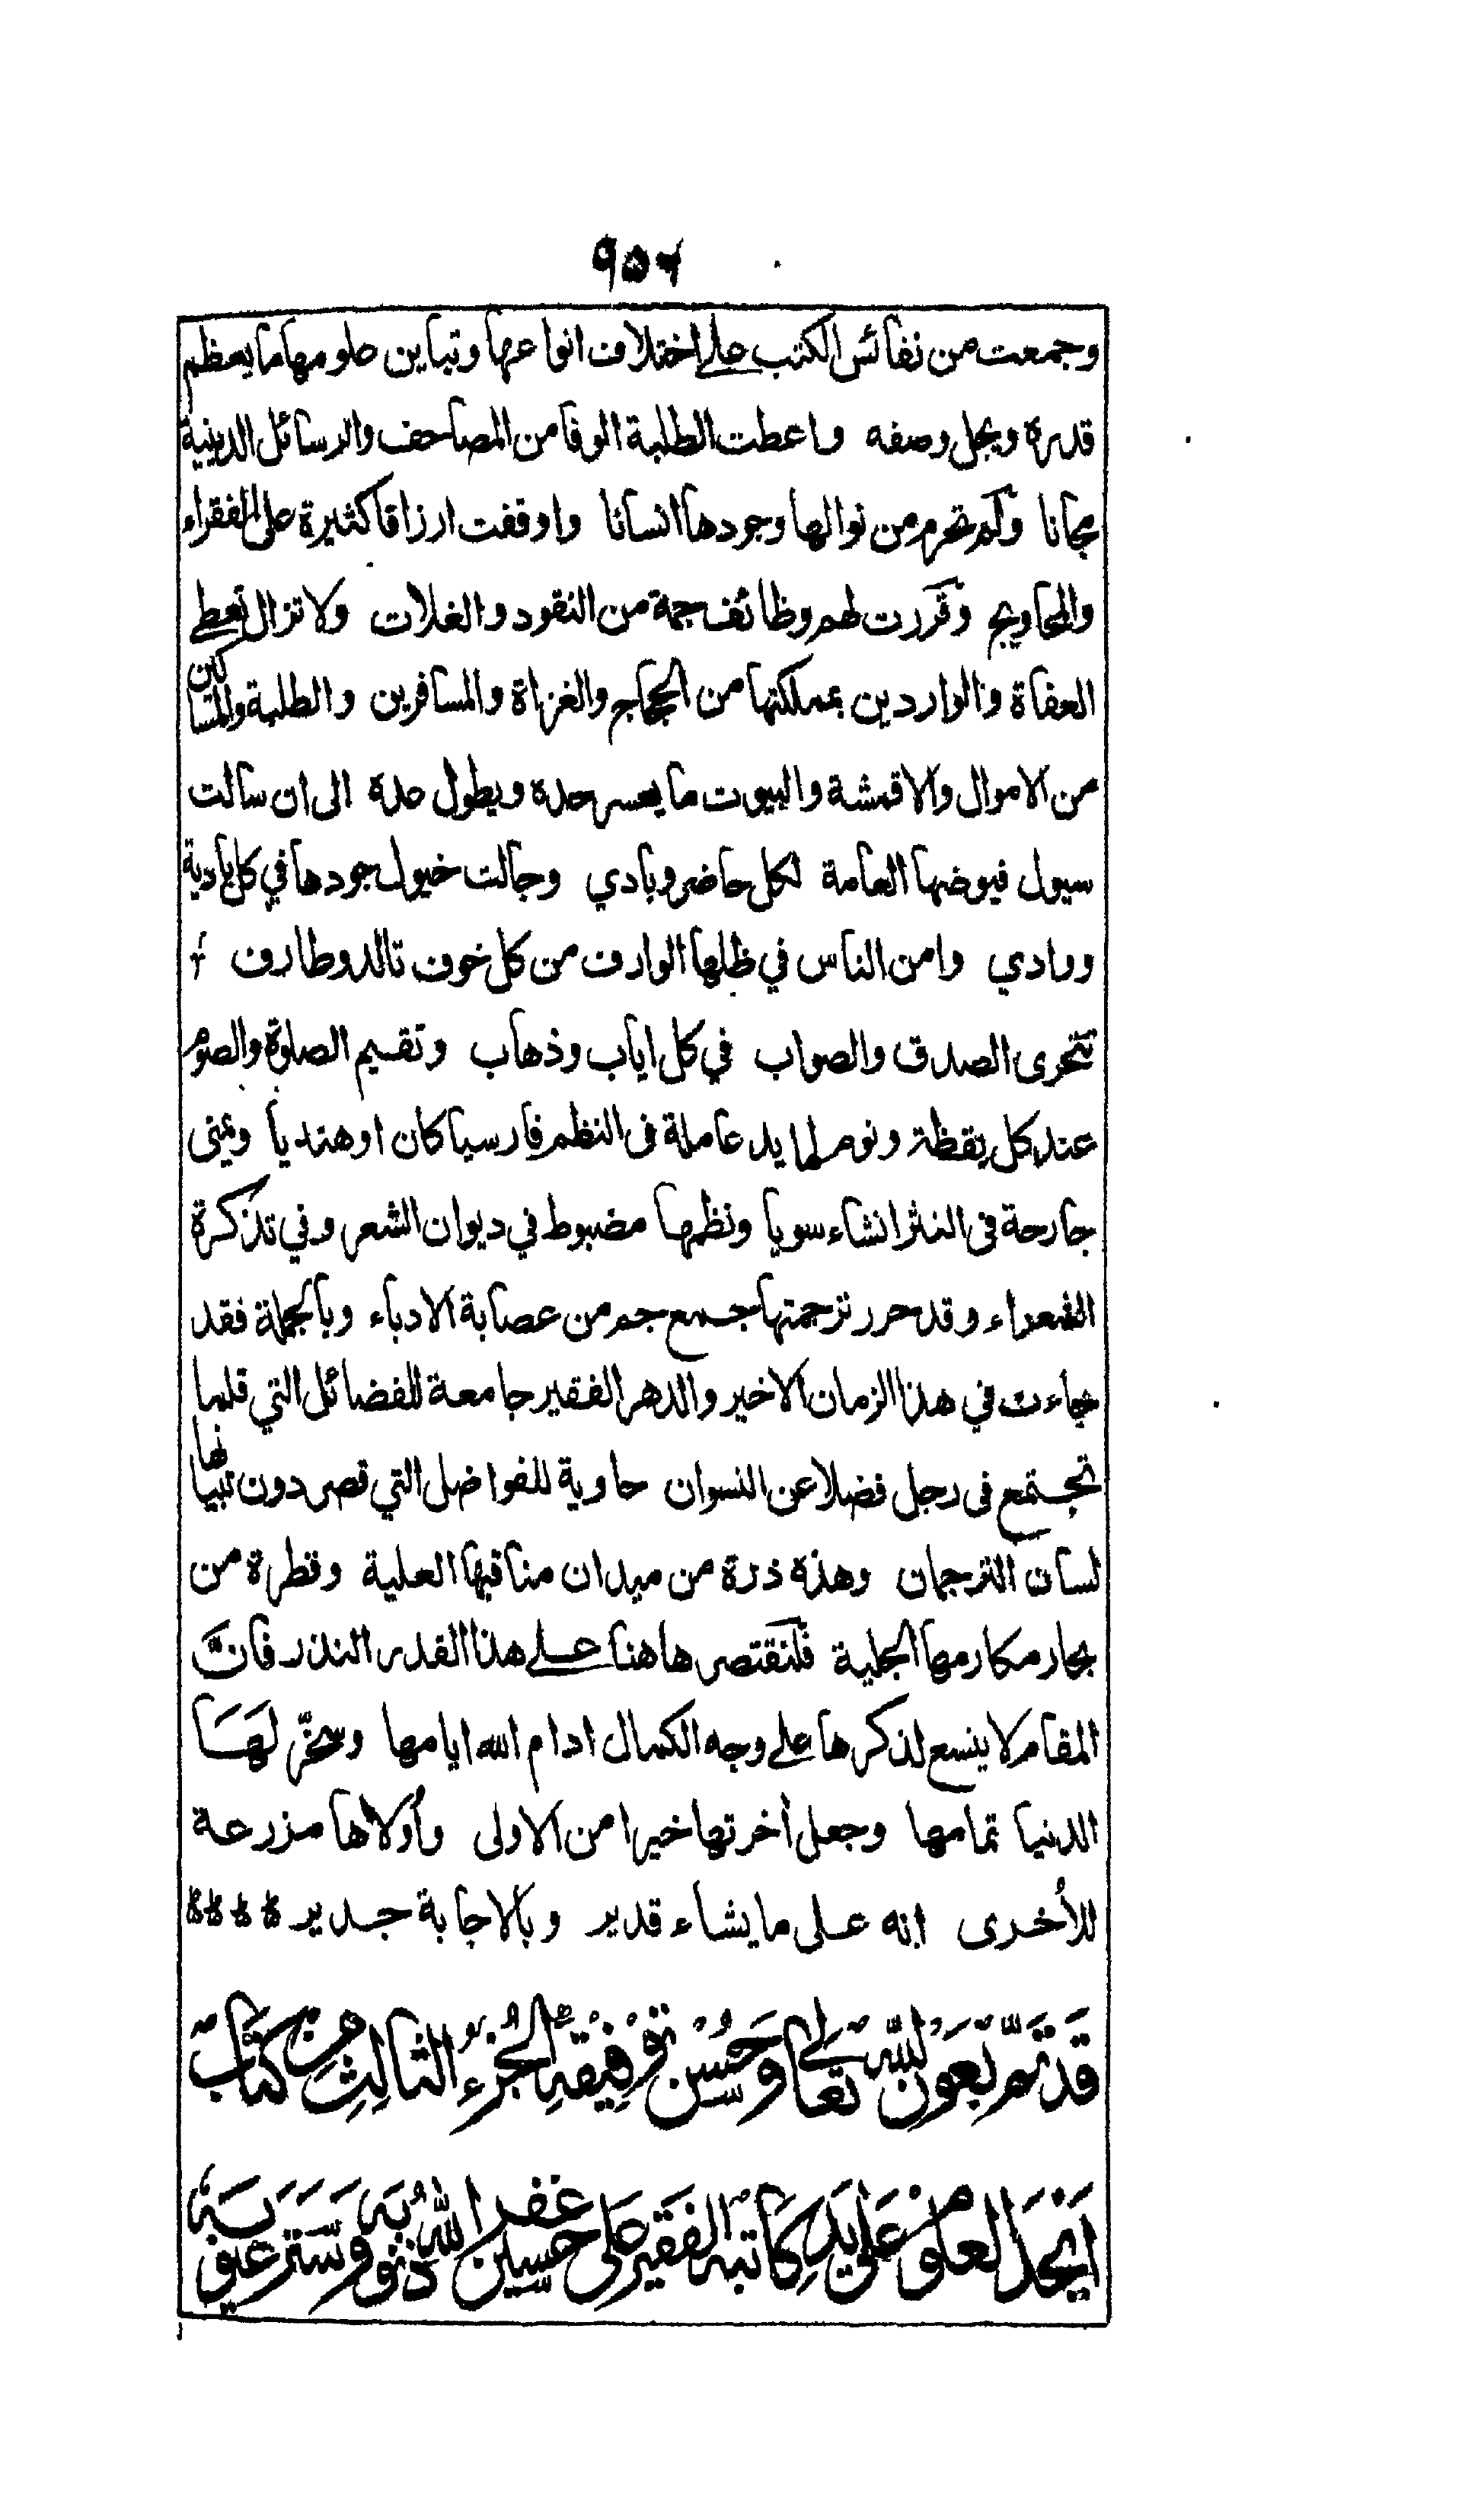 ٩٥٦
وجمعت من نفائس الكتب على اختلاف انواعها وتباين علومها ما يعظم
قدره ويجل وصفه واعطت الطلبة الوفا من المصاحف والرسائل الدينية
مجانا ولم تحرم من نوالها وجودها انسانا واوقفت ارزاقا كثيرة على الفقراء
والمحاويج وقررت لهم وظائف جمة من النقود والغلات ولا تزال تعطي
العفاة والواردين بمملكتها من الحجاج والغزاة والمسافرين والطلبة والمساكين
من الاموال والاقمشة والبيوت ما يعسر حده ويطول عده الى ان سالت
سيول فيوضها العامة لكل حاضر وبادي وجالت خيول جودها في كل بادية
ووادي وامن الناس في ظلها الوارف من كل خوف تالد وطارف
تتحرى الصدق والصواب في كل اياب وذهاب وتقيم الصلوة والصوم
عند كل يقظة ونوم لها يد عاملة فى النظم فارسيا كان او هنديا ويمنى
جارحة فى النثر انشاء سويا ونظمها مضبوط في ديوان الشعر وفي تذكرة
الشعراء وقد حرر ترجمتها جمع جم من عصابة الادباء وبالجملة فقد
جاءت في هذا الزمان الاخير والدهر الفقير جامعة للفضائل التي قلما
تجتمع فى رجل فضلا عن النسوان حاوية للفواضل التي قصر دون تبيانها
لسان الترجمان وهذه ذرة من ميدان مناقبها العلية وقطرة من
بحار مكارمها الجلية فلنقتصر هاهنا على هذا القدر النذر فانَّ
المقام لا ينسع لذكرها على وجه الكمال ادام الله ايامها وسخّر لهَا
الدنيا تمامها وجعل أخرتها خيرا من الاولى وأولاها مزرعة
للأخرى انه على ما يشاء قدير وبالاجابة جدير
قد تم بعون الله تعالى وحسن توفيقه الجزء الثالث من كتاب
ابجد العلوم على يد كاتبه الفقير على حسين غفر الله ذنوبه وستر عيوبه